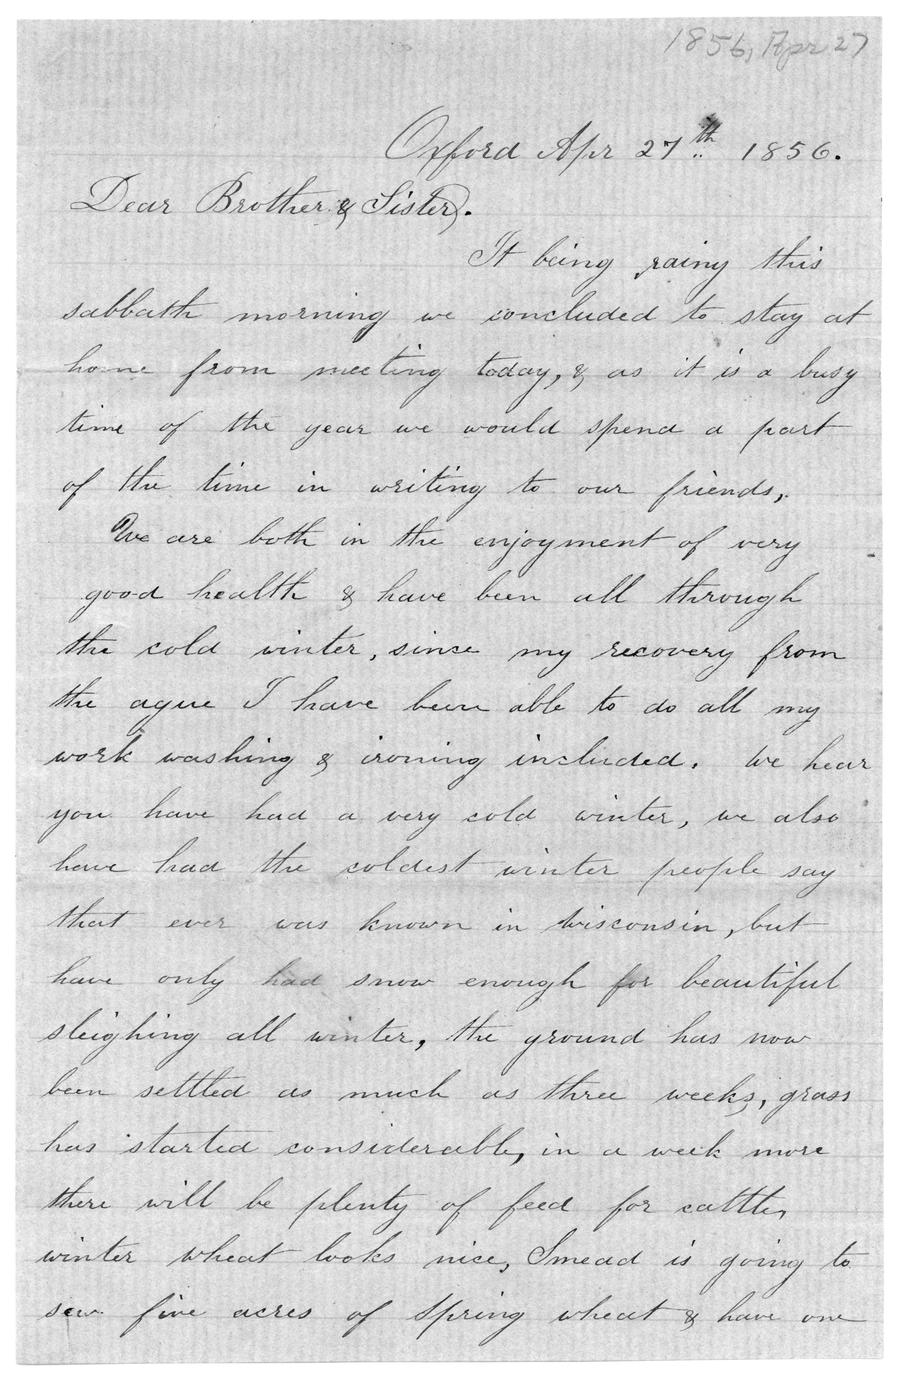 1856, Apr 27
Oxford Apr 27th 1856.
Dear Brother & Sister.
It being rainy this
sabbath morning we concluded to stay at
home from meeting today, & as it is a busy
time of the year we would spend a part
of the time in writing to our friends,.
We are both in the enjoyment of very
good health & have been all through
the cold winter, since my recovery from
the ague I have been able to do all my
work washing & ironing included. We hear
you have had a very cold winter, we also
have had the coldest winter people say
that ever was known in Wisconsin, but
have only had snow enough for beautiful
sleighing all winter, the ground has now
been settled as much as three weeks, grass
has started considerable, in a week more
there will be plenty of feed for cattle,
winter wheat looks nice, Smead is going to
sew five acres of Spring wheat & have one